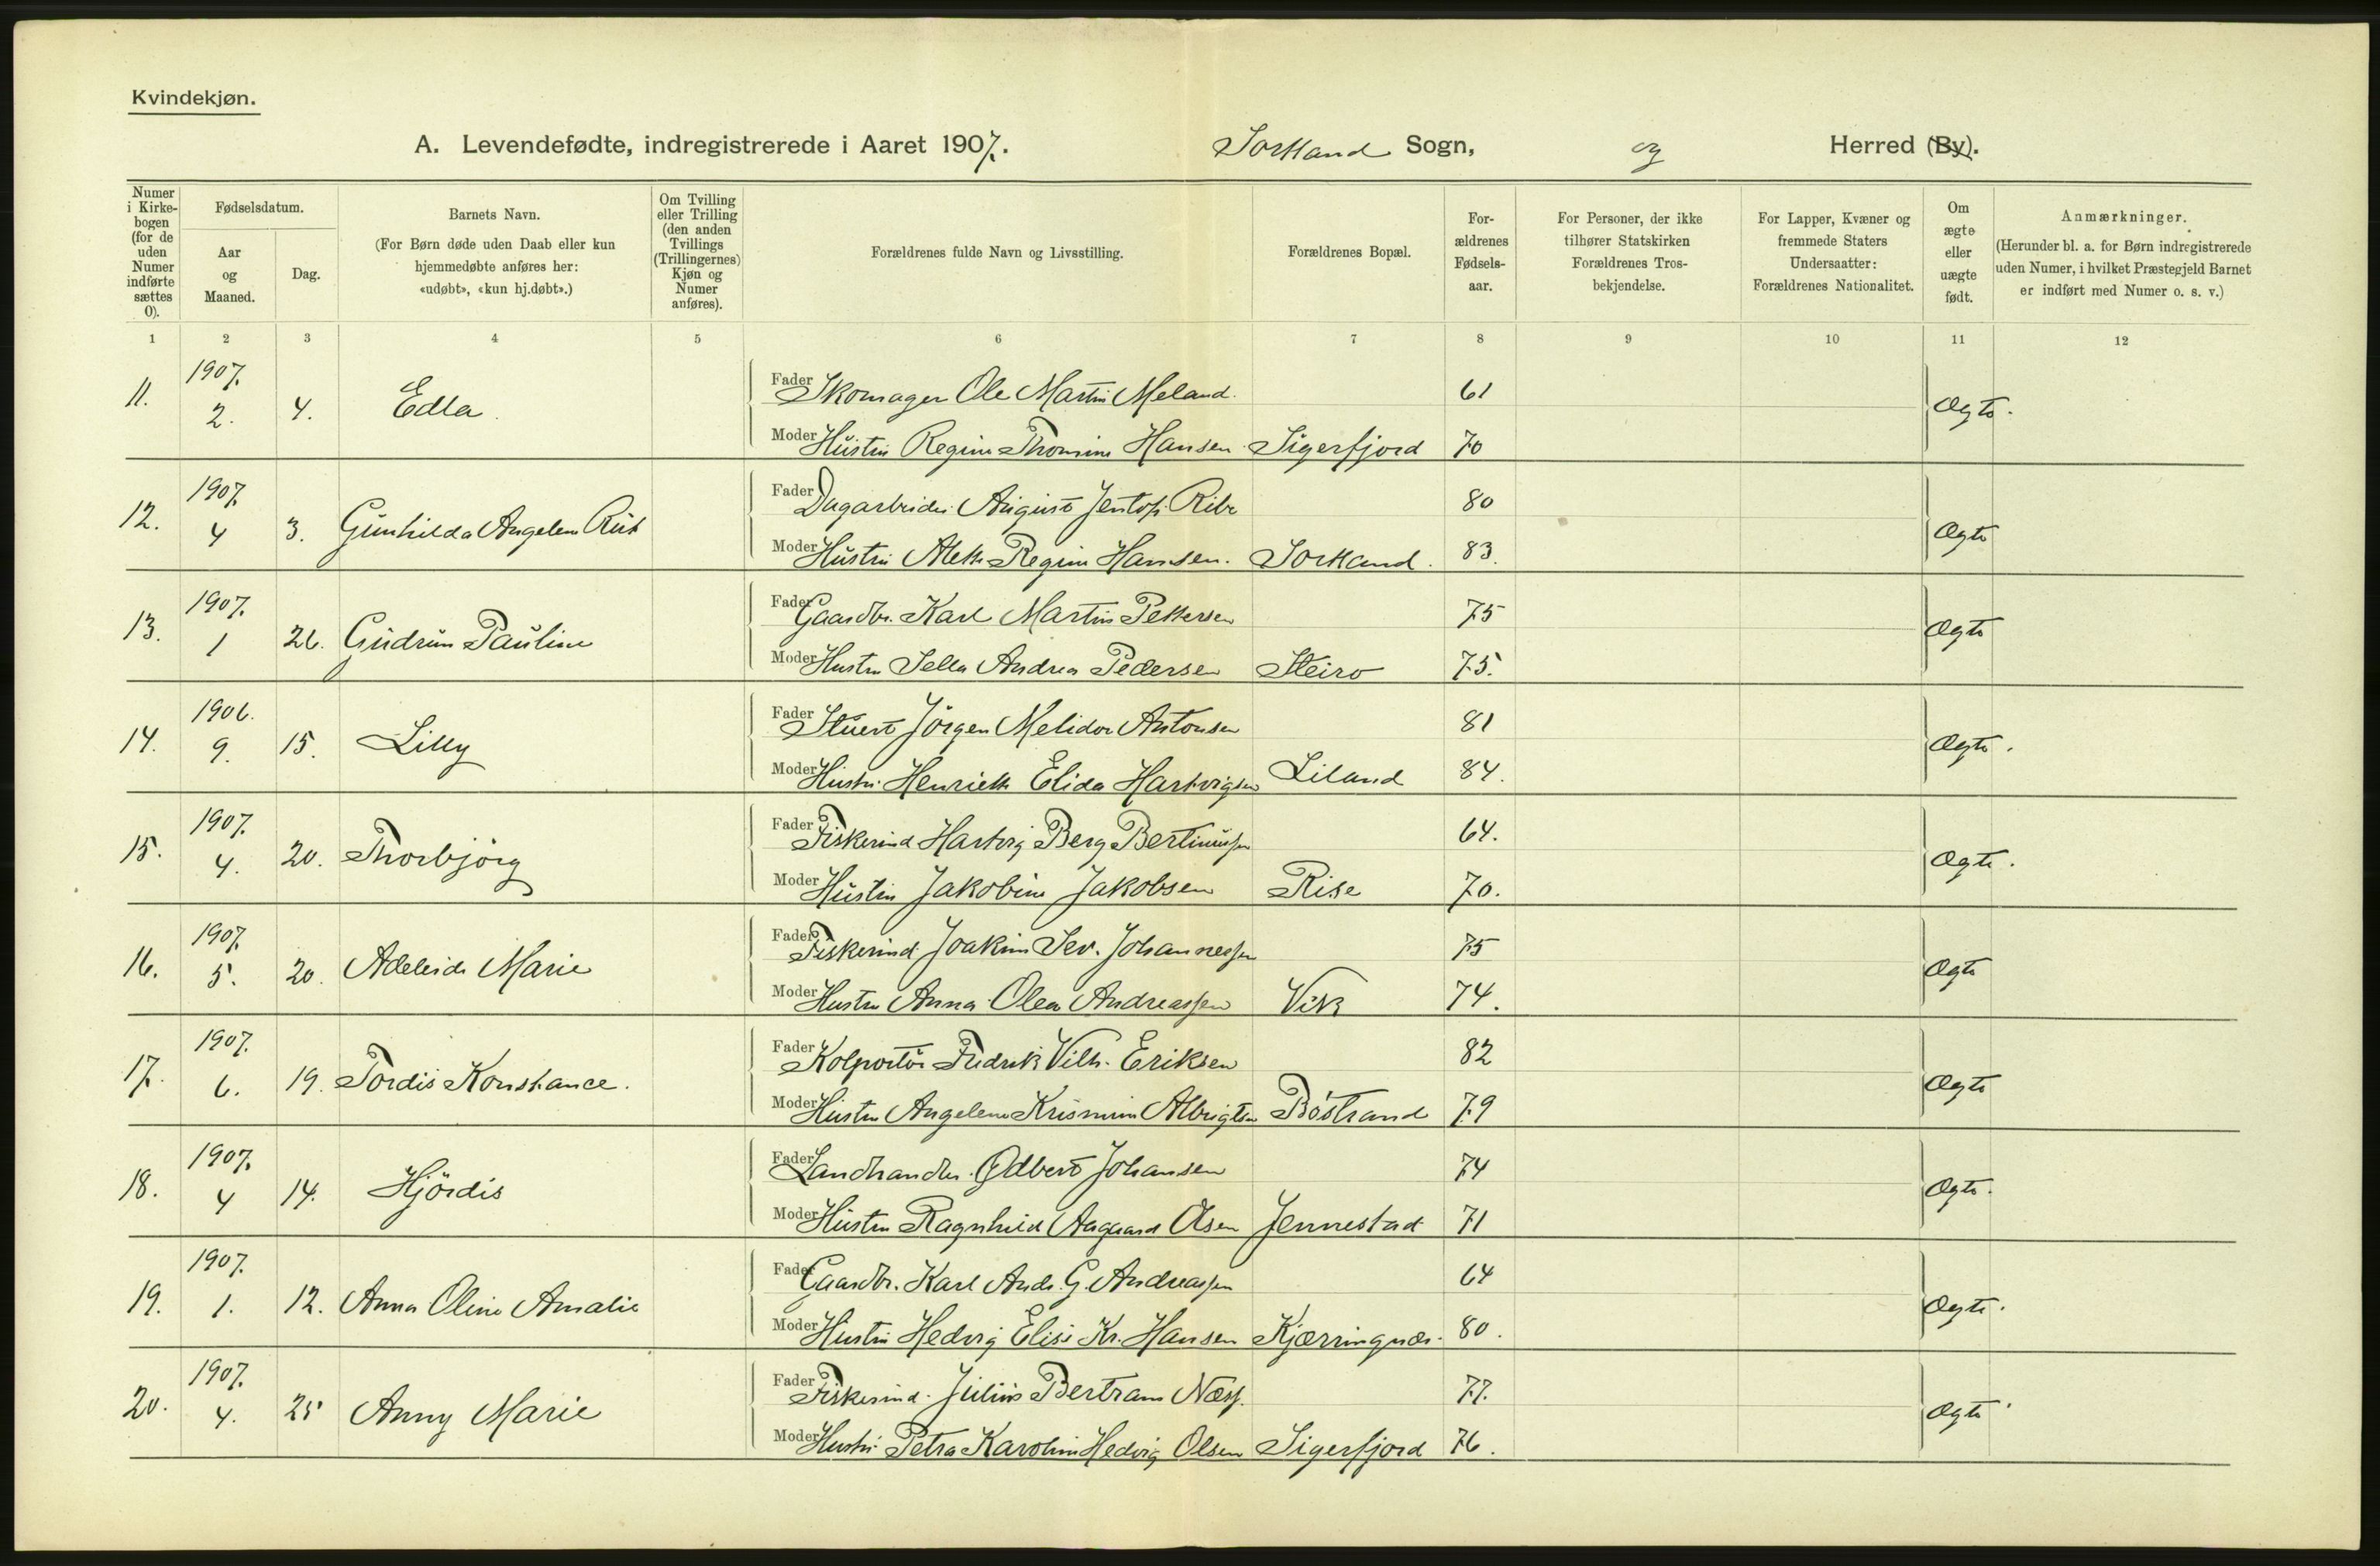 Kvindekjøn.
A. Levendefødte, indregistrerede i Aaret 1907. Sortland Sogn, og Herred (By).
Numer i Kirkebogen (for de uden Numer indførte sættes 0).
Fødselsdatum.
Aar og Maaned.
Dag.
Barnets Navn.
(For Børn døde uden Daab eller kun hjemmedøbte anføres her: «udøbt», «kun hj.døbt».)
Om Tvilling eller Trilling (den anden Tvillings (Trillingernes) Kjøn og Numer anføres).
Forældrenes fulde Navn og Livsstilling.
Forældrenes Bopæl.
For-ældrenes Fødsels-aar.
For Personer, der ikke tilhører Statskirken Forældrenes Tros-bekjendelse.
For Lapper, Kvæner og fremmede Staters Undersaatter: Forældrenes Nationalitet.
Om ægte eller uægte født.
Anmærkninger.
(Herunder bl. a. for Børn indregistrerede uden Numer, i hvilket Præstegjeld Barnet er indført med Numer o. s. v.)
1 2 3 4 5 6 7 8 9 10 11 12
1907. Fader Skomager Ole Martin Meland. 61
11. 2. 4. Edla. Ægte.
Moder Hustru Regine Thomine Hansen Sigerfjord 70
1907. Fader Dagarbeider August Jentoft Ribe 80
12. 4 3. Gunhilda Angelene Rut Ægte
Moder Hustru Alette Regine Hansen. Sortland. 83.
1907. Fader Gaardbr. Karl Martin Pettersen 75
13. 1 26. Gudrun Pauline Ægte
Moder Hustru Sella Andrea Pedersen Steiro 75.
1906. Fader Stuert Jörgen Melidor Antonsen 81
14. 9. 15. Lilly Ægte.
Moder Hustru Henriette Elida Hartvigsen Liland 84.
1907. Fader Fiskerind Hartvig Berg Bertinussen 64.
15. 4. 20. Thorbjörg Ægte.
Moder Hustru Jakobine Jakobsen Rise 70.
1907. Fader Fiskerind. Joakim Sev. Johannessen 75
16. 5. 20. Adeleide Marie Ægte
Moder Hustru Anna Olea Andreassen Vik 74.
1907. Fader Kolportör Fredrik Vilh. Eriksen 82
17. 6. 19. Tordis Konstance. Ægte
Moder Hustru Angelene Albrigtsen Böstrand 79
1907. Fader Landhandler Odbert Johansen 74
18. 4 14. Hjördis Ægte.
Moder Hustru Ragnhild Aagaard Olsen Jennestad 71
1907. Fader Gaardbr. Karl Andr. G. Andreassen 64
19. 1. 12. Anna Oline Amalie Ægte.
Moder Hustru Hedvig Elise Kr. Hansen Kjærringnæs. 80.
1907. Fader Fiskerind. Julius Bertram Næss. 77.
20. 4. 25 Anny Marie Ægte
Moder Hustru Petra Karoline Hedvig Olsen Sigerfjord 76.